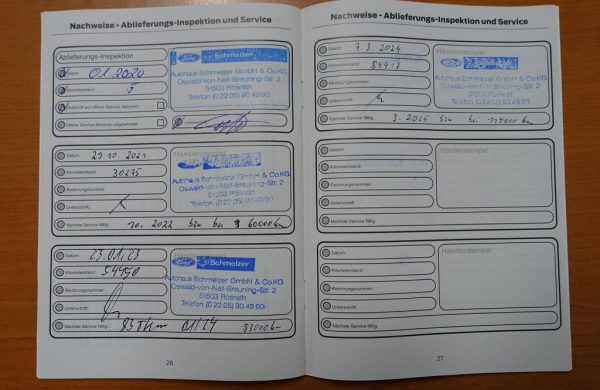 Nachweise - Ablieferungs-Inspektion und Service
Ablieferungs-Inspektion
Datum: 01.2020
Kilometerstand:
Überprüft auf offene Service-Aktionen
Offene Service-Aktionen abgearbeitet
Ford Schmelzer
Autohaus Schmelzer GmbH & Co.KG
Oswald-von-Nell-Breuning-Str. 2
51503 Rösrath
Telefon (0 22 05) 90 49 90
Datum: 29.10.2021
Kilometerstand: 30275
Rechnungsnummer:
Unterschrift:
Nächste Service fällig: 10. 2022 bzw bei 60000 km
Händlerstempel
Autohaus Schmelzer GmbH & Co.KG
Oswald-von-Nell-Breuning-Str. 2
51503 Rösrath
Telefon (0 22 05) 90 49 90
Datum: 23.01.23
Kilometerstand:
Rechnungsnummer:
Unterschrift:
Nächste Service fällig: 83Tkm 01/24 83000 km
Händlerstempel
Ford Schmelzer
Autohaus Schmelzer GmbH & Co.KG
Oswald-von-Nell-Breuning-Str. 2
51503 Rösrath
Telefon (0 22 05) 90 49 90
26
Nachweise - Ablieferungs-Inspektion und Service
Datum: 7.3.2024
Kilometerstand:
Rechnungsnummer:
Unterschrift:
Nächste Service fällig: 3. bzw bei 114000 km
Händlerstempel
Ford
Autohaus Schmelzer GmbH & Co.KG
Oswald-von-Nell-Breuning-Str. 2
51503 Rösrath
Telefon (0 22 05) 90 49 90
Datum:
Kilometerstand:
Rechnungsnummer:
Unterschrift:
Nächste Service fällig:
Händlerstempel
Datum:
Kilometerstand:
Rechnungsnummer:
Unterschrift:
Nächste Service fällig:
Händlerstempel
27